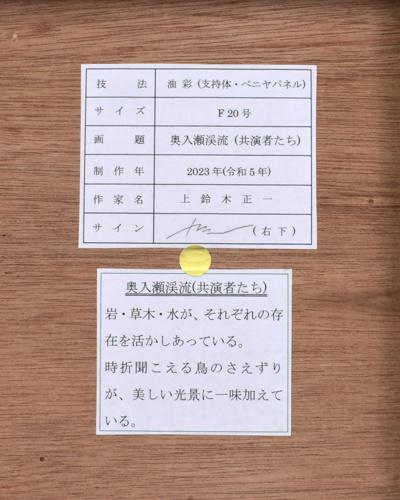 技法 油彩(支持体・ベニヤパネル)
サイズ F20号
画題 奥入瀬渓流(共演者たち)
制作年 2023年(令和5年)
作家名 上鈴木正一
サイン (右下)
奥入瀬渓流(共演者たち)
岩・草木・水が、それぞれの存
在を活かしあっている。
時折聞こえる鳥のさえずり
が、美しい光景に一味加えて
いる。